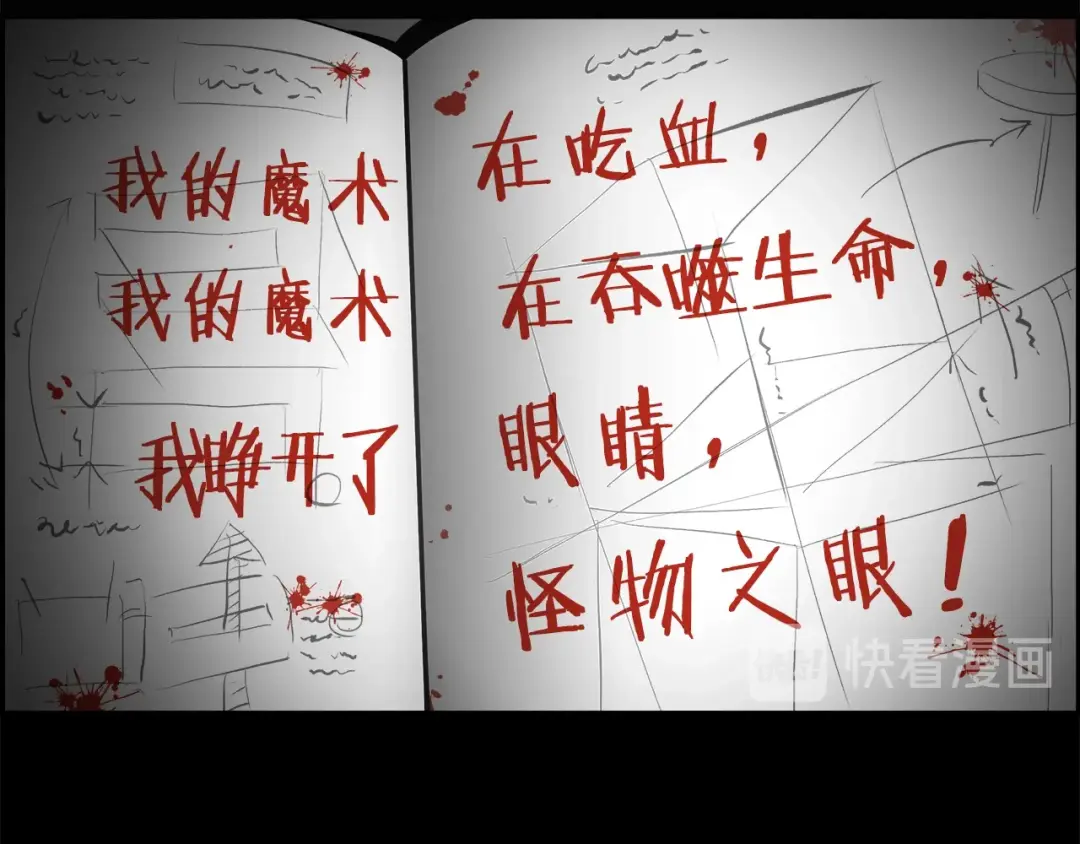 我的魔术
我的魔术
我睁开了
在吃血，
在吞噬生命，
眼睛，
怪物之眼！
快看漫画